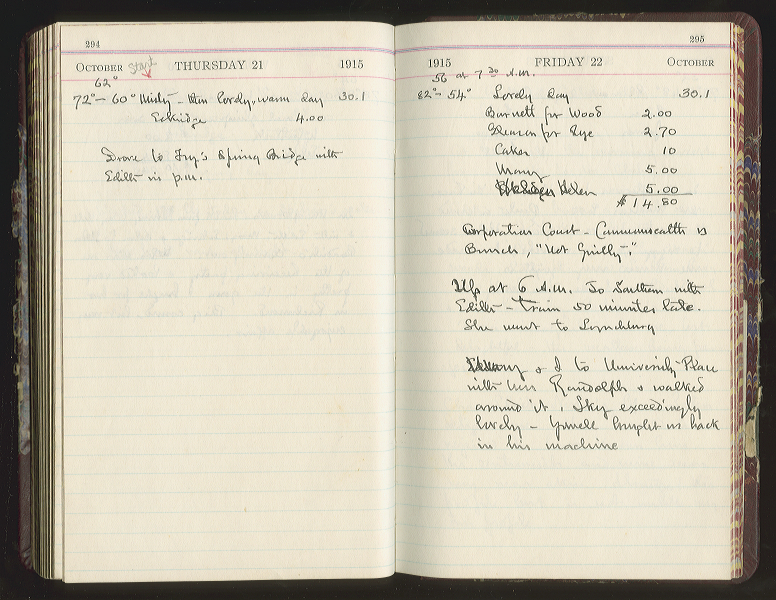 294
OCTOBER Start THURSDAY 21 1915
62°
72° - 60° Misty - then lovely, warm day 30.1
Eskridge 4.00
Drove to Fry's Spring Bridge with
Edith in p.m.
295
1915 FRIDAY 22 OCTOBER
56 at 7 30 A.m.
82° - 54° Lovely day 30.1
Burnett for Wood 2.00
Gleason for Rye 2.70
Cakes 10
Mary 5.00
Helen 5.00
$14.80
Corporation Court - Commonwealth vs
Bunch, "Not Guilty."
Up at 6 A.m. To Southern with
Edith - train 50 minutes late.
She went to Lynchburg
& I to University Place
with Mrs Randolph & walked
around it. Sky exceedingly
lovely - brought us back
in his machine